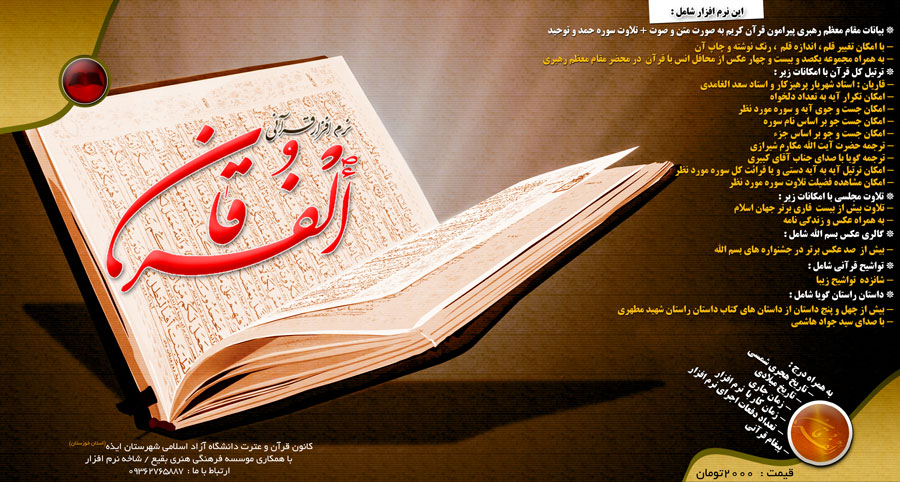 این نرم افزار شامل :
❊ بیانات مقام معظم رهبری پیرامون قرآن کریم به صورت متن و صوت + تلاوت سوره حمد و توحید
– با امکان تغییر قلم ، اندازه قلم ، رنگ نوشته و چاپ آن
– به همراه مجموعه یکصد و بیست و چهار عکس از محافل انس با قرآن در محضر مقام معظم رهبری
❊ ترتیل کل قرآن با امکانات زیر :
– قاریان : استاد شهریار پرهیزکار و استاد سعد الغامدی
– امکان تکرار آیه به تعداد دلخواه
– امکان جست و جوی آیه و سوره مورد نظر
– امکان جست جو بر اساس نام سوره
– امکان جست و جو بر اساس جزء
– ترجمه حضرت آیت الله مکارم شیرازی
– ترجمه گویا با صدای جناب آقای کبیری
– امکان ترتیل آیه به آیه دستی و یا قرائت کل سوره مورد نظر
– امکان مشاهده فضیلت تلاوت سوره مورد نظر
❊ تلاوت مجلسی با امکانات زیر :
– تلاوت بیش از بیست قاری برتر جهان اسلام
– به همراه عکس و زندگی نامه
❊ گالری عکس بسم الله شامل :
– بیش از صد عکس برتر در جشنواره های بسم الله
❊ تواشیح قرآنی شامل :
– شانزده تواشیح زیبا
❊ داستان راستان گویا شامل :
– بیش از چهل و پنج داستان از داستان های کتاب داستان راستان شهید مطهری
– با صدای سید جواد هاشمی
نرم افزار قرآنی
الفرقان
به همراه درج :
– تاریخ هجری شمسی
– تاریخ میلادی
– زمان جاری
– زمان کار با نرم افزار
– تعداد دفعات اجرای نرم افزار
– پیغام قرآنی
کانون قرآن و عترت دانشگاه آزاد اسلامی شهرستان ایذه (استان خوزستان)
با همکاری موسسه فرهنگی هنری بقیع / شاخه نرم افزار
ارتباط با ما : ۰۹۳۶۲۷۶۵۸۸۷
قیمت : ۲۰۰۰تومان